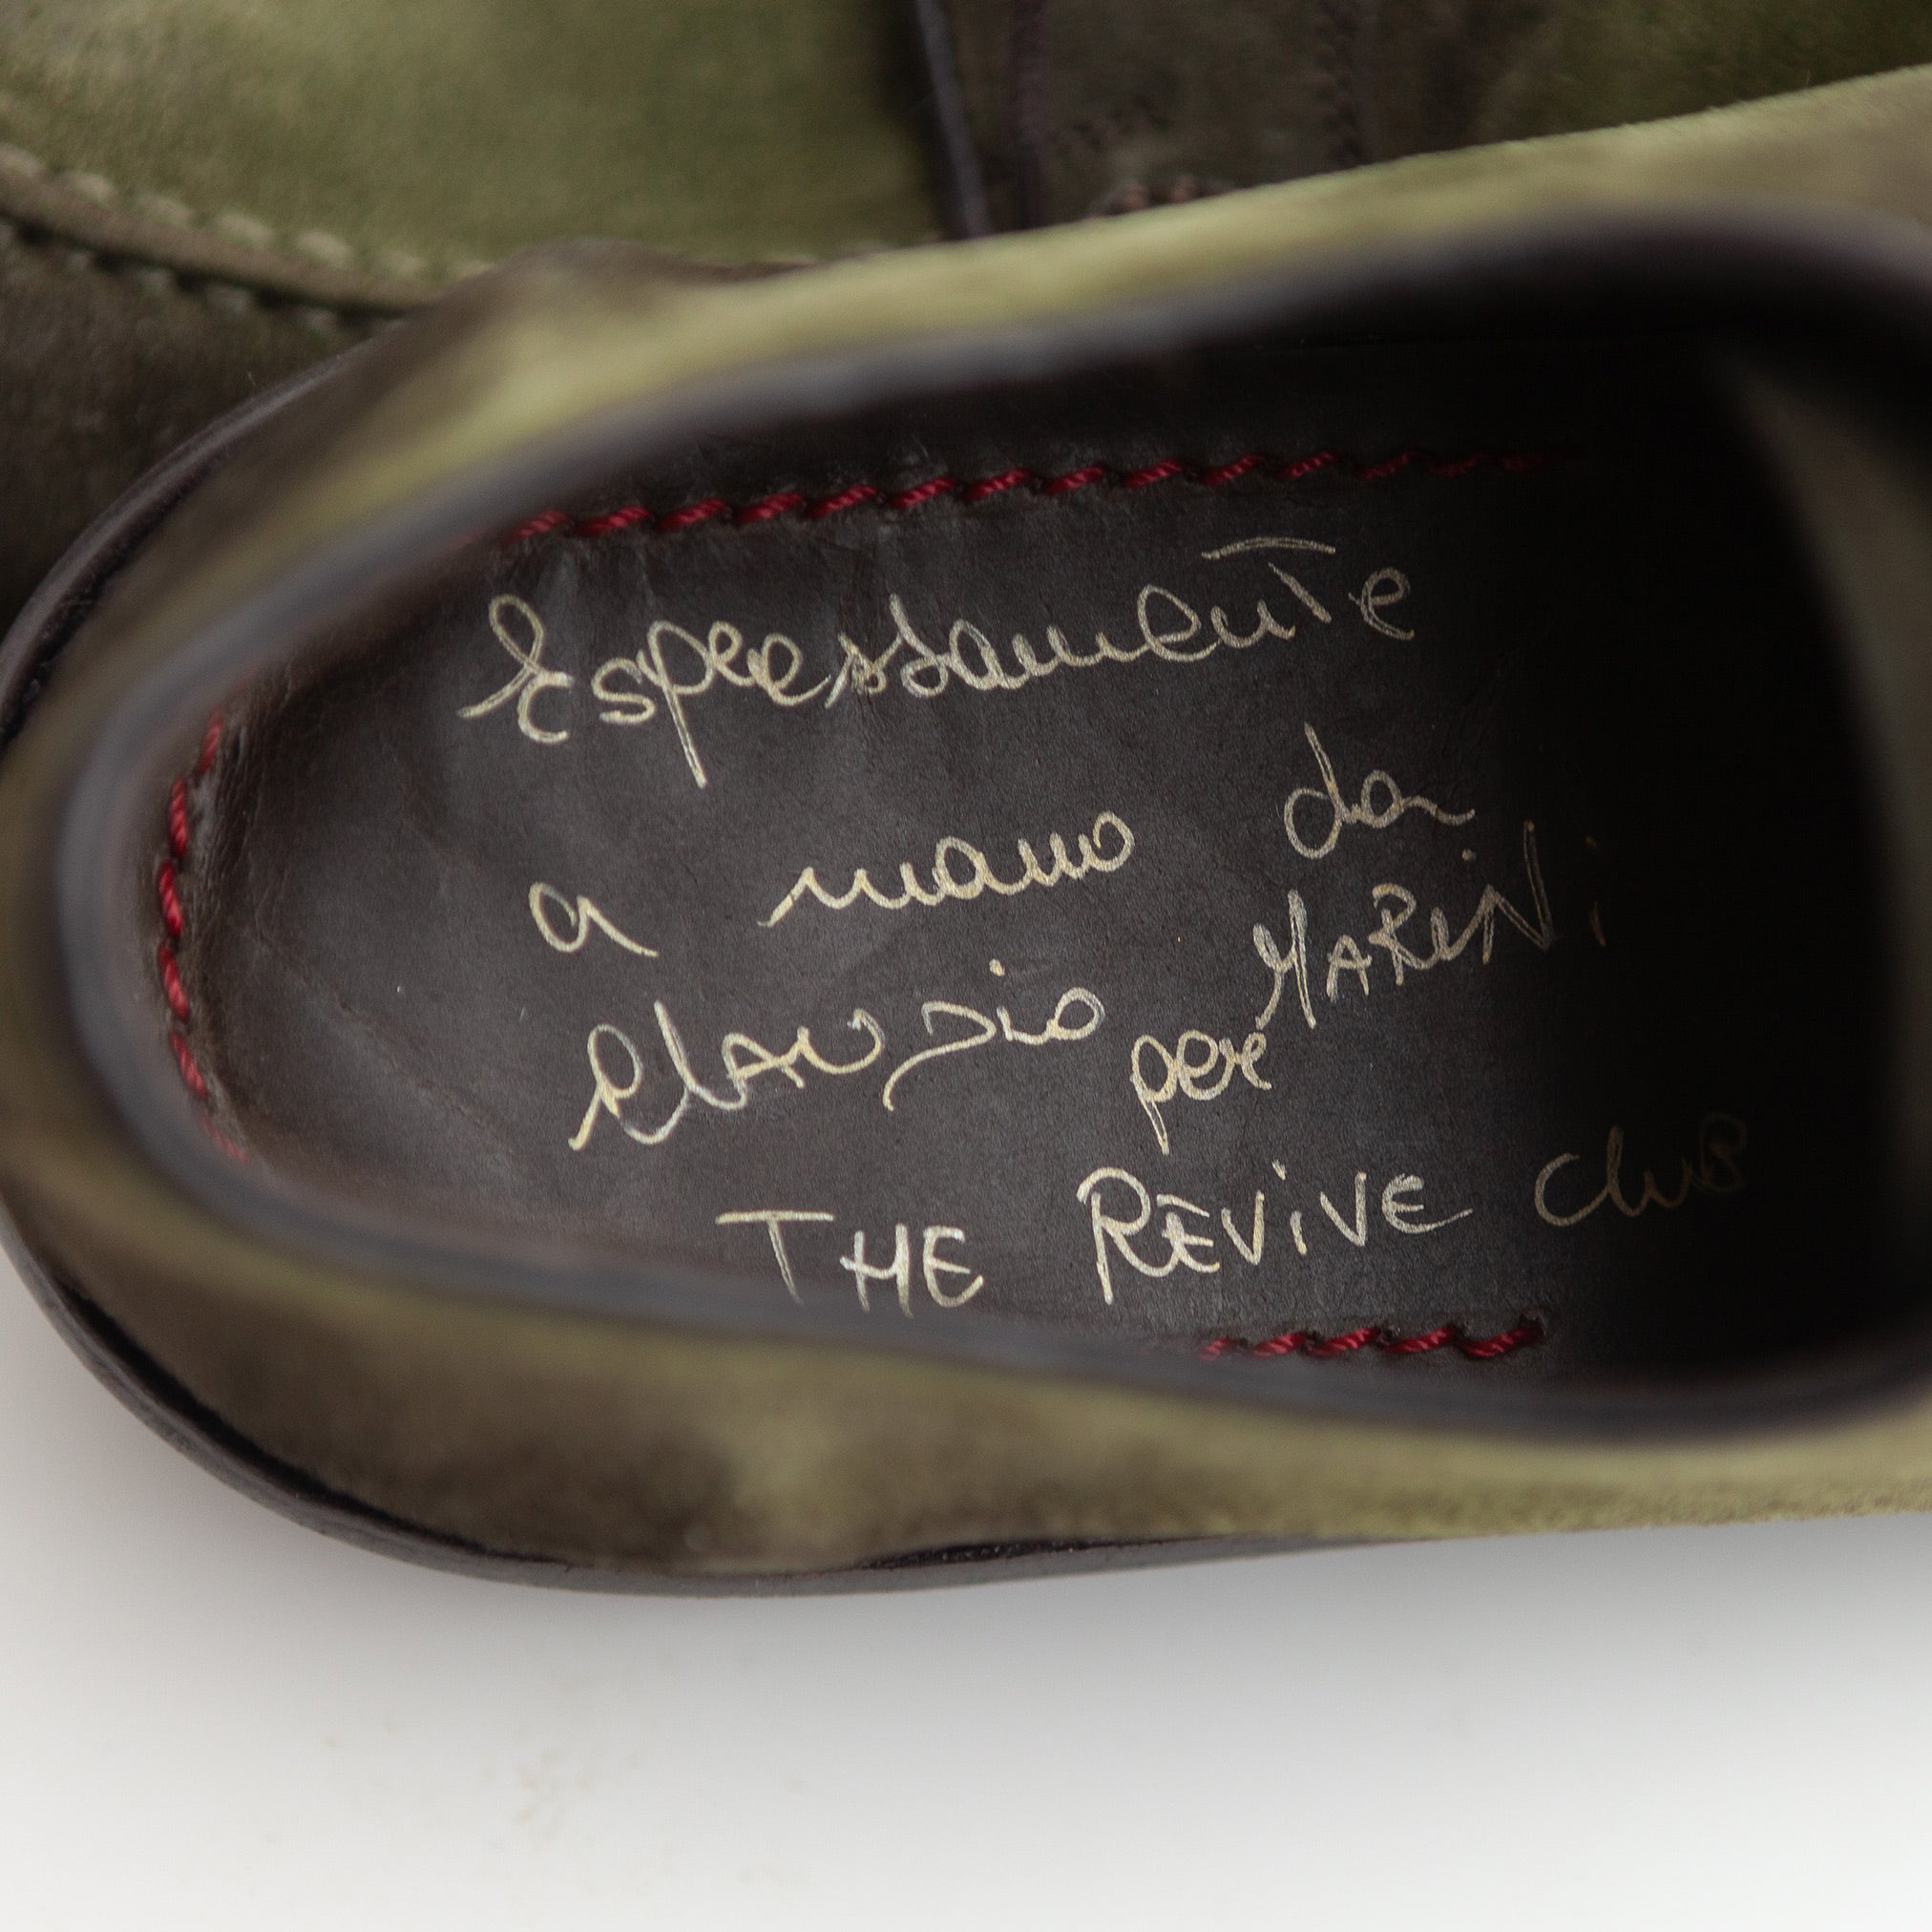 Espressamente
a mano da
Claudio MARiNi
per
THE REViVE CluB